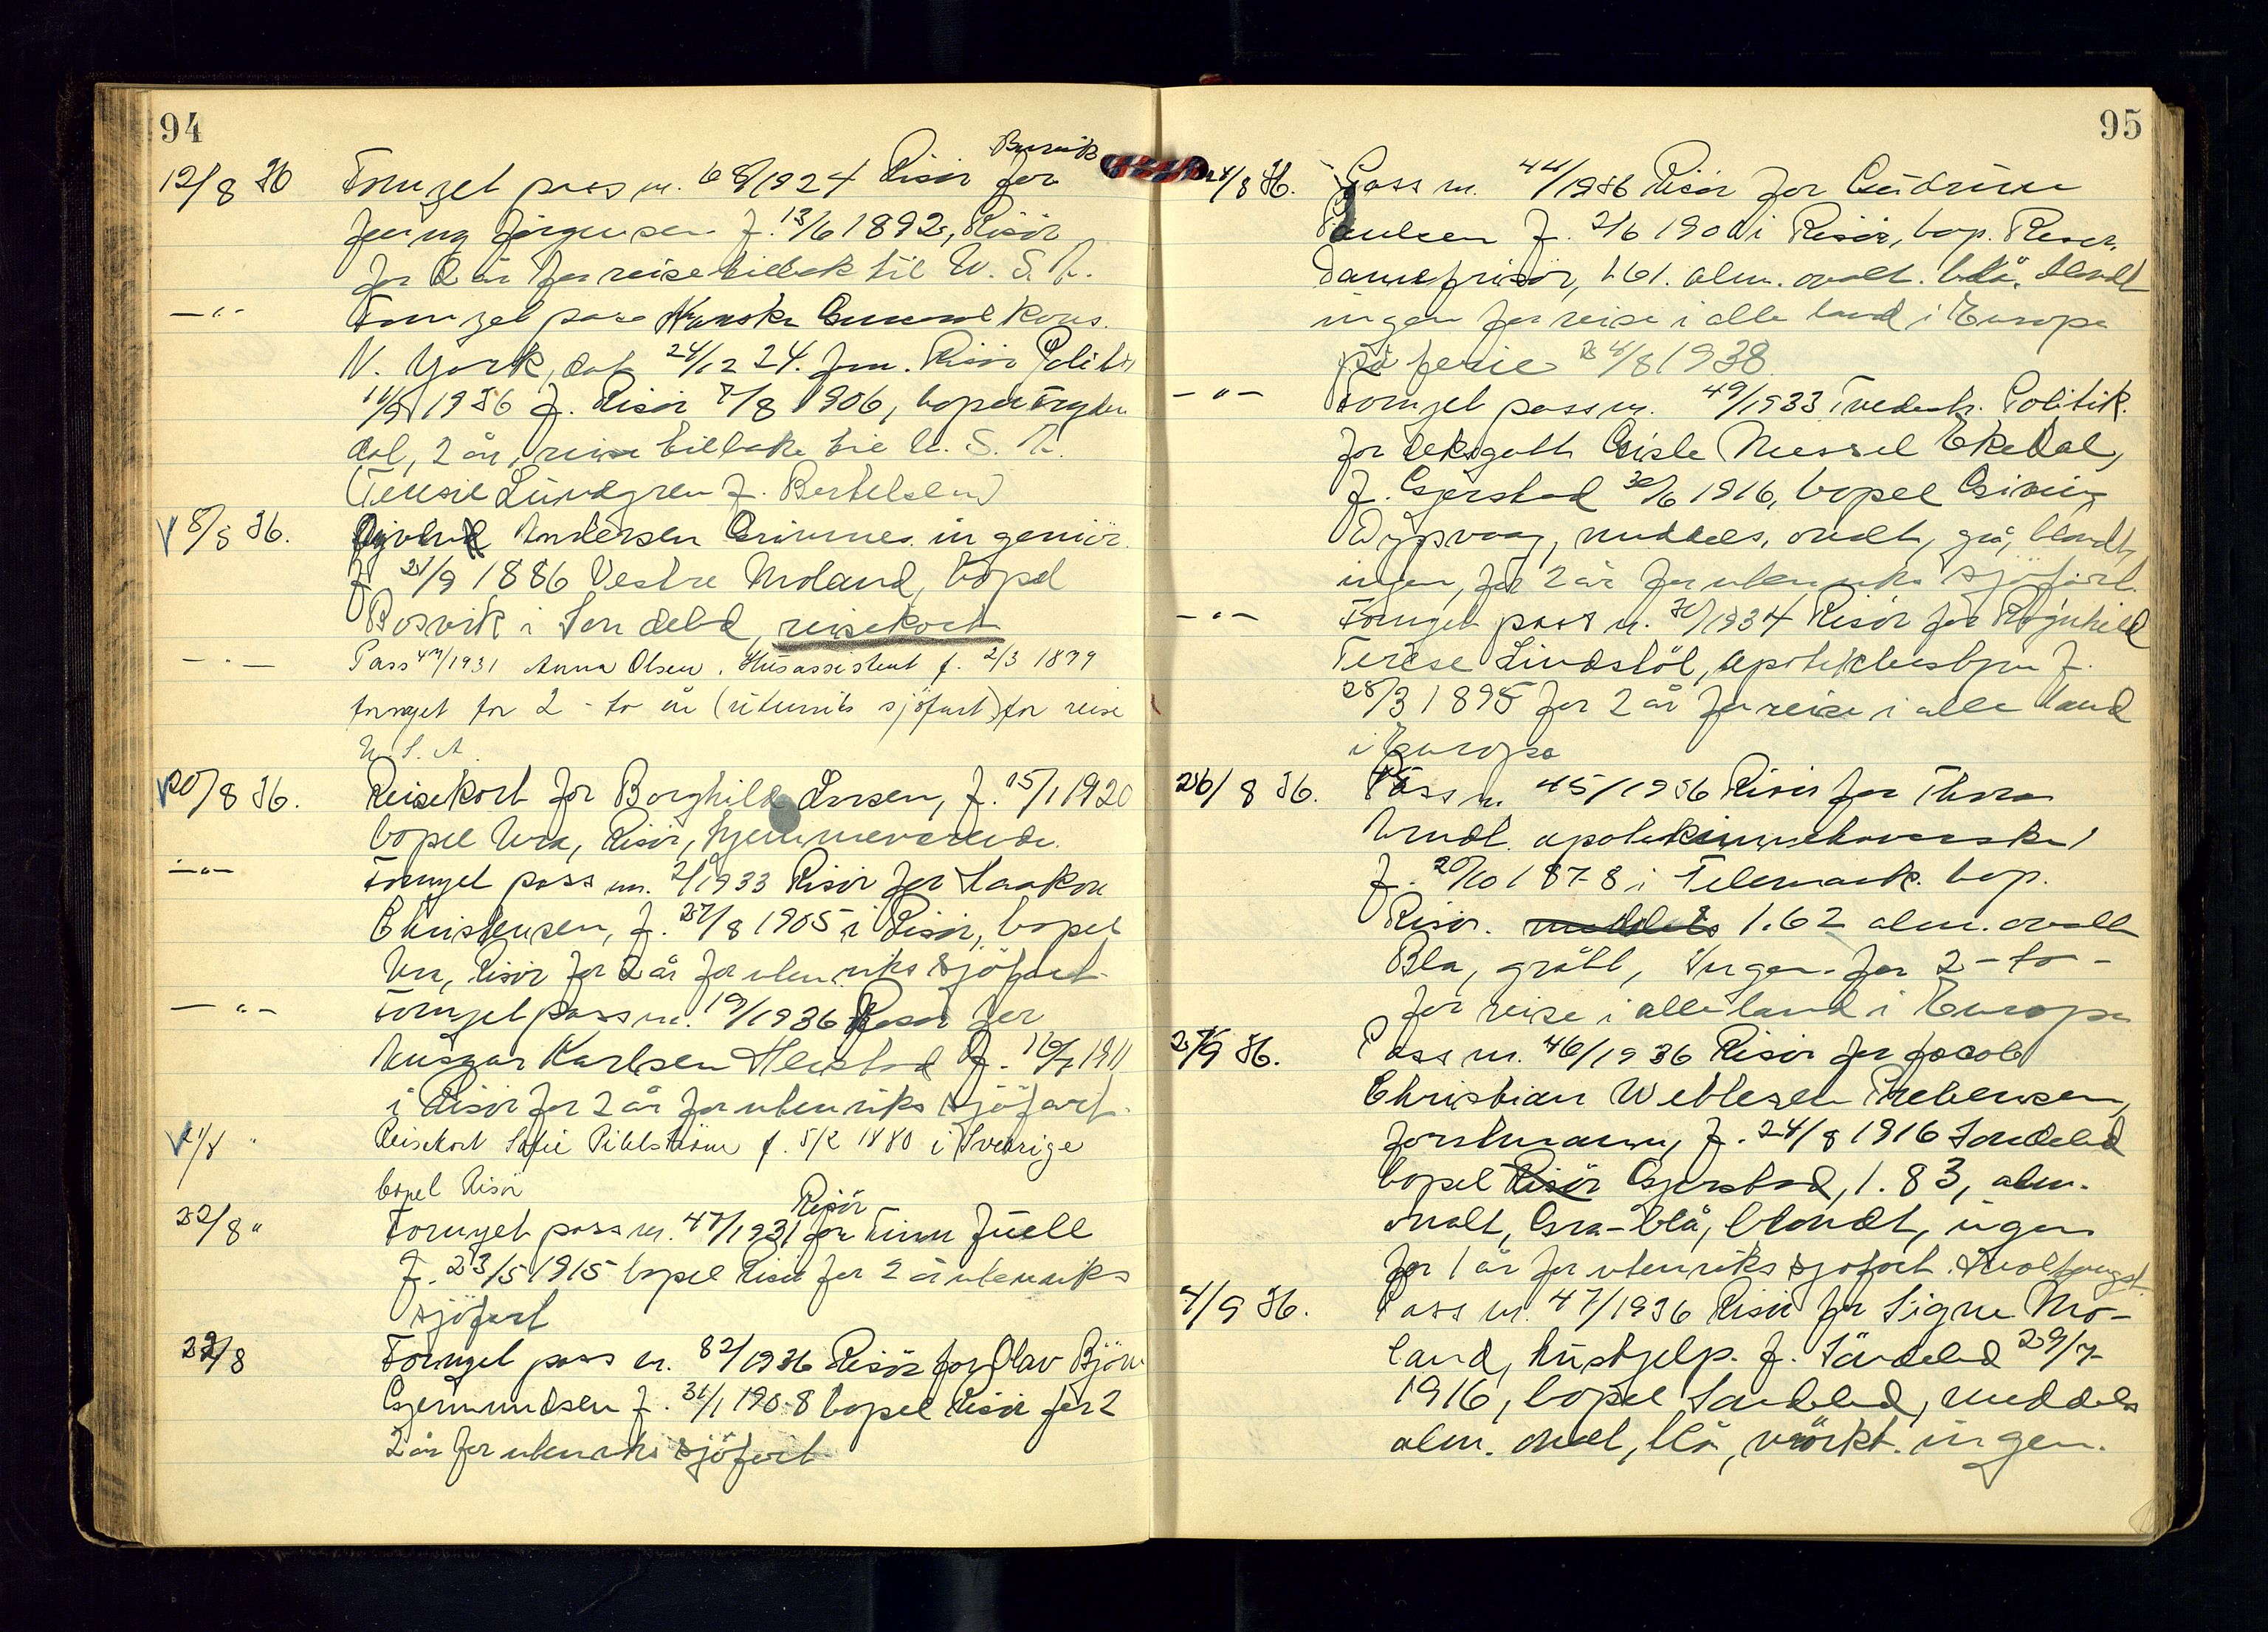 94
Buvik
12/8 36 Fornyet pass nr. 68/1924 Risör for
Jörgensen f. 13/6 1892, Risör
for 2 år for reise tilbake til U. S. A.
— " — Fornyet pass Norske General Kons.
N. York, dat 24/12 24. forn. Risör Politik
1936 f. Risör 7/8 1906, bopel Fryden
dal, 2 år, reise tilbake til U. S. A.
(Tensie Lundgren f. Bertelsen)
8/8 36. Andersen Grimnes ingeniör
f. 21/9 1886 Vestre Moland, bopel
Bosvik i Söndeled, reisekort
— " — Pass 47/1931 Anna Olsen, Husassistent f. 2/3 1899
fornyet for 2 - to år (utenriks sjöfart) for reise
U. S. A.
20/8 36. Reisekort for Borghild Larsen, f. 15/1 1920
bopel Ura, Risör, hjemmeværende.
— " — Fornyet pass nr. 2/1933 Risör for Haakon
Christensen, f. 27/8 1905 i Risör, bopel
Ura, Risör for 2 år for utenriks sjöfart
— " — Fornyet pass nr. 19/1936 Risör for
Ansgar Karlsen Heistad f. 1911
i Risör for 2 år for utenriks sjöfart.
21/8 " Reisekort Sofie Pihlström f. 5/2 1880 i Sverige
bopel Risör
Risör
22/8 " Fornyet pass nr. 47/1931 for Finn Juell
f. 23/5 1915 bopel Risör for 2 år utenriks
sjöfart
22/8 Fornyet pass nr. 82/1936 Risör for Olav Björn
Gjermundsen f. 31/1 1908 bopel Risör for 2
2 år for utenriks sjöfart
95
24/8 36. Pass nr. 44/1936 Risör for Gudrun
Paulsen f. 2/6 1900 i Risör, bop. Risör,
Damefrisör, 1.61. alm. ovalt. blå, blondt
ingen for reise i alle land i Europa
på ferie 4/8 1938
— " — Fornyet pass nr. 49/1933 Tvedestr. Politik.
for dekksgutt Gisle Messel Ekedal,
f. Gjerstad 30/6 1916, bopel Giving
Dypvaag, middels, ovalt, grå, blondt,
ingen, for 2 år for utenriks sjöfart.
— " — Fornyet pass nr. 70/1934 Risör for Ragnhild
Terese Lindstöl, apotekbestyrer f.
28/3 1895 for 2 år for reise i alle land
i Europa
26/8 36. Pass nr. 45/1936 Risör for Thora
Arndt. apotekinnehaverske,
f. 20/10 1878 i Telemark. bop.
Risör. middels 1.62 alm. ovalt
Blå, grått, Ingen. for 2 - to -
for reise i alle land i Europa
2/9 36. Pass nr. 46/1936 Risör for Jacob
Christian Wetlesen Prebensen,
forstmann, f. 24/8 1916 Söndeled
bopel Risör Gjerstad, 1.83, alm.
ovalt, Grå-blå, blondt, ingen
for 1 år for utenriks sjöfart. Hvalfangst.
4/9 36. Pass nr. 47/1936 Risör for Signe Mo-
land, hushjelp. f. Söndeled 29/7
1916, bopel Söndeled, middels
alm. ovalt, blå, mörkt. ingen.